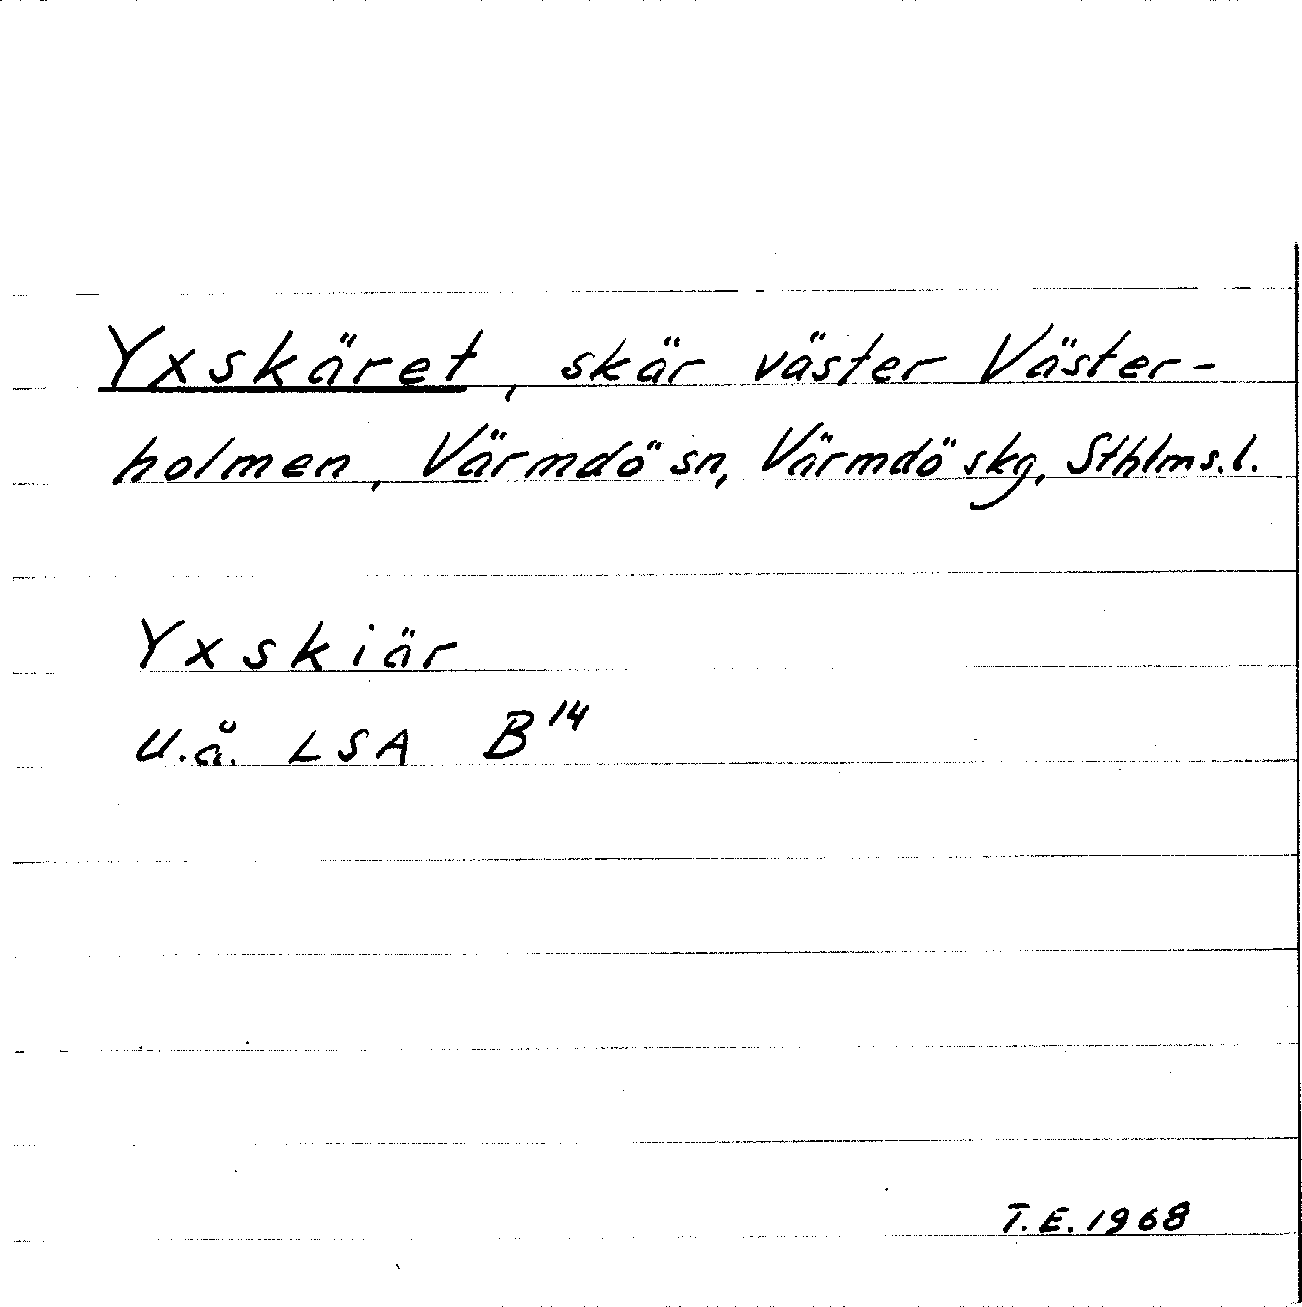 Yxskäret, skär väster Väster-
holmen, Värmdö sn, Värmdö skg, Sthlms.l.
Yxskiär
U.å. LSA B¹⁴
T.E. 1968